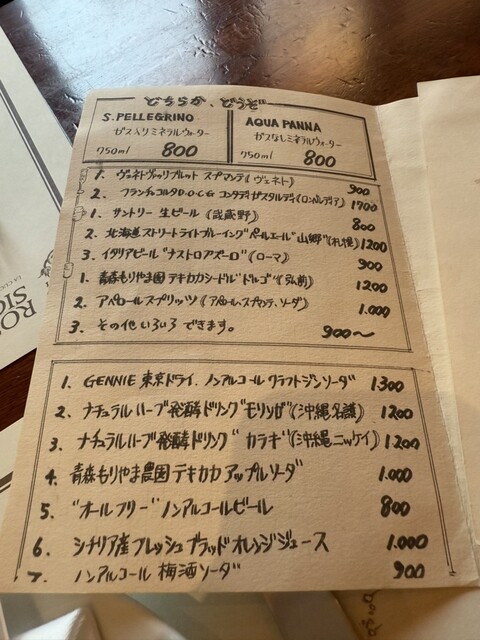 どちらか、どうぞ
S.PELLEGRINO
ガス入りミネラルウォーター
750ml 800
AQUA PANNA
ガスなしミネラルウォーター
750ml 800
1. スプマンテ(ヴェネト) 900
2. フランチャコルタD.O.C.G コンタディ カスタルディ(ロンバルディア) 1700
1. サントリー 生ビール (武蔵野) 800
2. 北海道ストリートライトブルーイング"ペールエール"山郷"(札幌) 1200
3. イタリアビール"ナストロアズーロ"(ローマ) 900
1. 青森もりやま園 テキカカシードル"ドルゴ"(弘前) 1200
2. アペロールスプリッツ(アペロール、スプマンテ、ソーダ) 1.000
3. その他いろいろできます。 900〜
1. GENNIE 東京ドライ、ノンアルコール クラフトジンソーダ 1300
2. ナチュラルハーブ発酵ドリンク"モリンガ"(沖縄名護) 1200
3. ナチュラルハーブ発酵ドリンク"カラキ"(沖縄ニッケイ) 1200
4. 青森もりやま農園 テキカカ アップルソーダ 1.000
5. "オールフリー" ノンアルコールビール 800
6. シチリア産フレッシュブラッドオレンジジュース 1.000
7. ノンアルコール 梅酒ソーダ 900